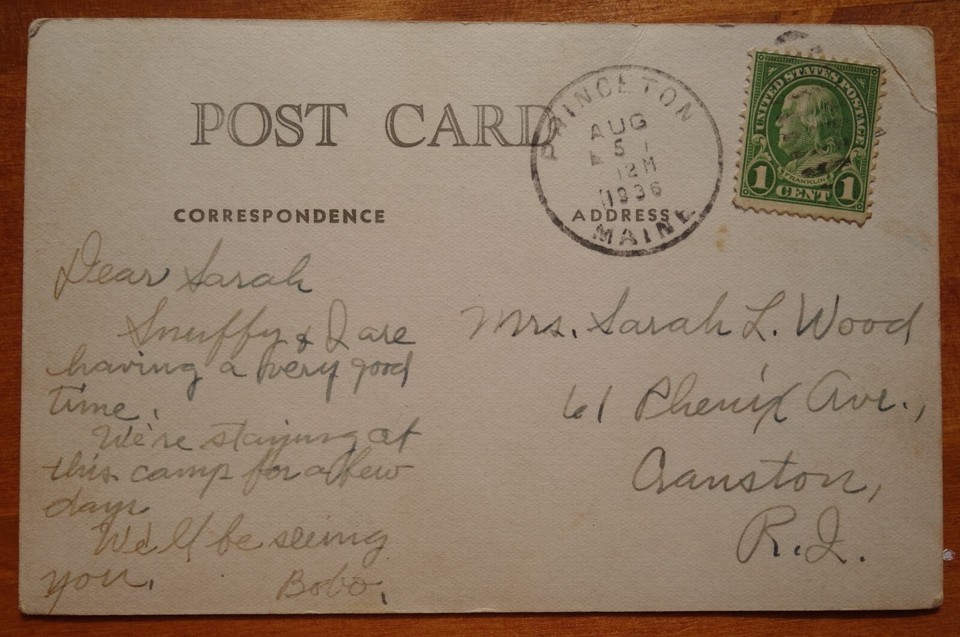 POST CARD
PRINCETON
AUG
5
12M
1936
MAINE
UNITED STATES POSTAGE
FRANKLIN
1 CENT 1
CORRESPONDENCE
ADDRESS
Dear Sarah
Snuffy & I are
having a very good
time.
We're staying at
this camp for a few
days
We'll be seeing
you.
Bobo.
Mrs. Sarah L. Wood
61 Phenix Ave.,
Cranston,
R.I.